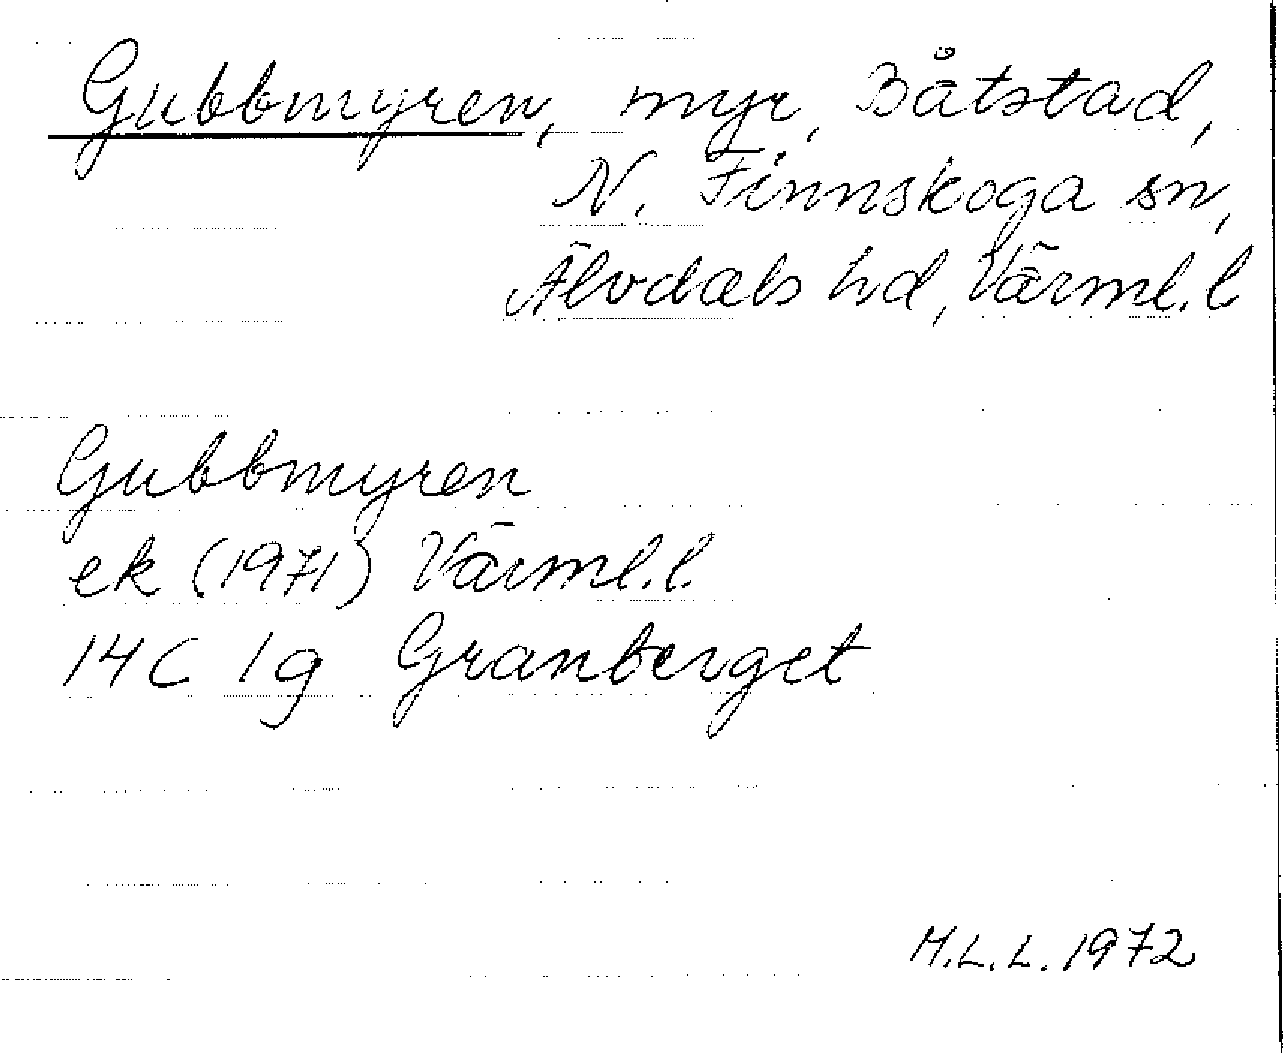 Gubbmyren, myr, Båtstad,
N. Finnskoga sn,
Älvdals hd, Värml. l
Gubbmyren
ek (1971) Värml. l.
14C 1g Granberget
M.L.L. 1972